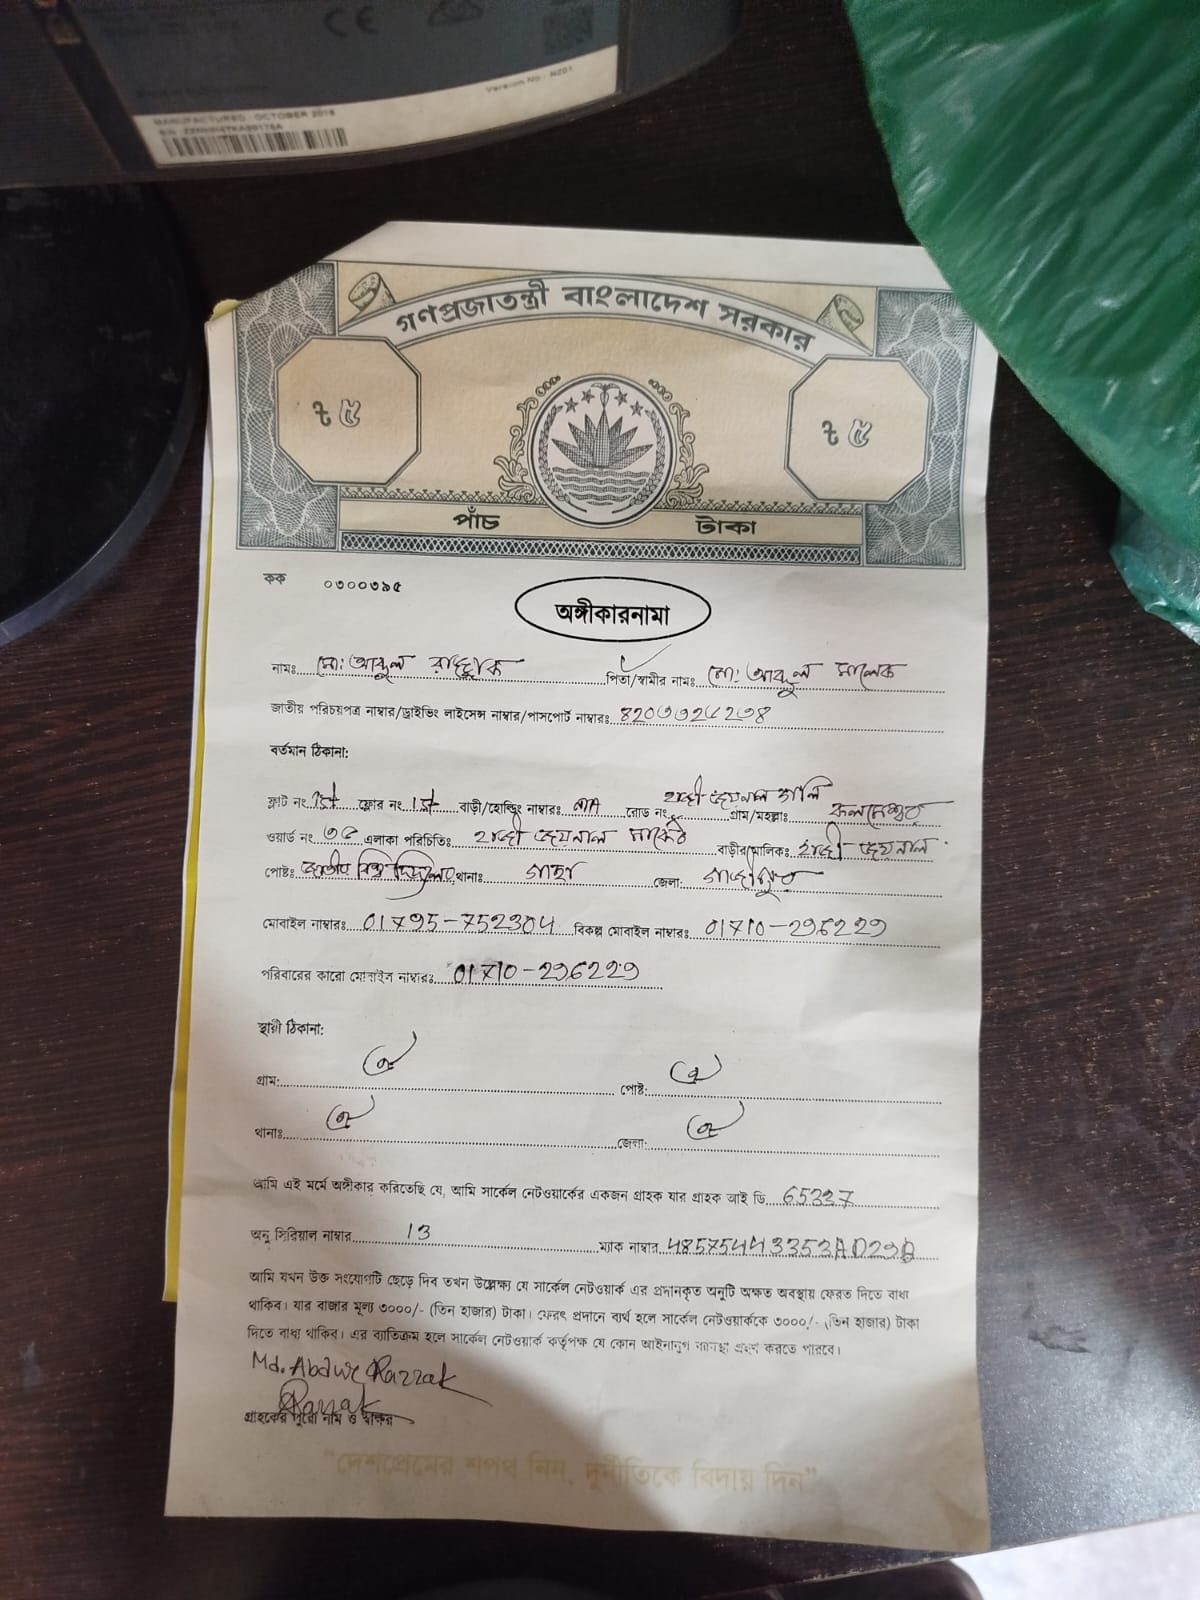 MANUFACTURED: OCTOBER 2019
Version No: N201
গণপ্রজাতন্ত্রী বাংলাদেশ সরকার
৳ ৫ ৳ ৫
পাঁচ টাকা
কক ০৩০০৩৯৫
অঙ্গীকারনামা
নামঃ মো: আব্দুল রাজ্জাক পিতা/স্বামীর নামঃ মো: আব্দুল মালেক
জাতীয় পরিচয়পত্র নাম্বার/ড্রাইভিং লাইসেন্স নাম্বার/পাসপোর্ট নাম্বারঃ
বর্তমান ঠিকানা:
ফ্লাট নং 1st ফ্লোর নং 1st বাড়ী/হোল্ডিং নাম্বারঃ N/A রোড নং হাজী জয়নাল গলি গ্রাম/মহল্লাঃ কলমেশ্বর
ওয়ার্ড নং ৩৫ এলাকা পরিচিতিঃ হাজী জয়নাল মার্কেট বাড়ীর মালিকঃ হাজী জয়নাল
পোষ্টঃ জাতীয় বিশ্ববিদ্যালয় থানাঃ গাছা জেলা: গাজীপুর
মোবাইল নাম্বারঃ 01795-752304 বিকল্প মোবাইল নাম্বারঃ 01710-296229
পরিবারের কারো মোবাইল নাম্বারঃ 01710-296229
স্থায়ী ঠিকানা:
গ্রাম: ঐ পোষ্ট: ঐ
থানাঃ ঐ জেলা: ঐ
আমি এই মর্মে অঙ্গীকার করিতেছি যে, আমি সার্কেল নেটওয়ার্কের একজন গ্রাহক যার গ্রাহক আই ডি 65337
অনু সিরিয়াল নাম্বার 13 ম্যাক নাম্বার 48575443353AD29B
আমি যখন উক্ত সংযোগটি ছেড়ে দিব তখন উল্লেক্ষ্য যে সার্কেল নেটওয়ার্ক এর প্রদানকৃত অনুটি অক্ষত অবস্থায় ফেরত দিতে বাধ্য
থাকিব। যার বাজার মূল্য ৩০০০/- (তিন হাজার) টাকা। ফেরৎ প্রদানে ব্যর্থ হলে সার্কেল নেটওয়ার্ককে ৩০০০/- (তিন হাজার) টাকা
দিতে বাধ্য থাকিব। এর ব্যতিক্রম হলে সার্কেল নেটওয়ার্ক কর্তৃপক্ষ যে কোন আইনানুগ ব্যবস্থা গ্রহণ করতে পারবে।
Md. Abdul Razzak
Razzak
গ্রাহকের পুরো নাম ও স্বাক্ষর
"দেশপ্রেমের শপথ নিন, দুর্নীতিকে বিদায় দিন"